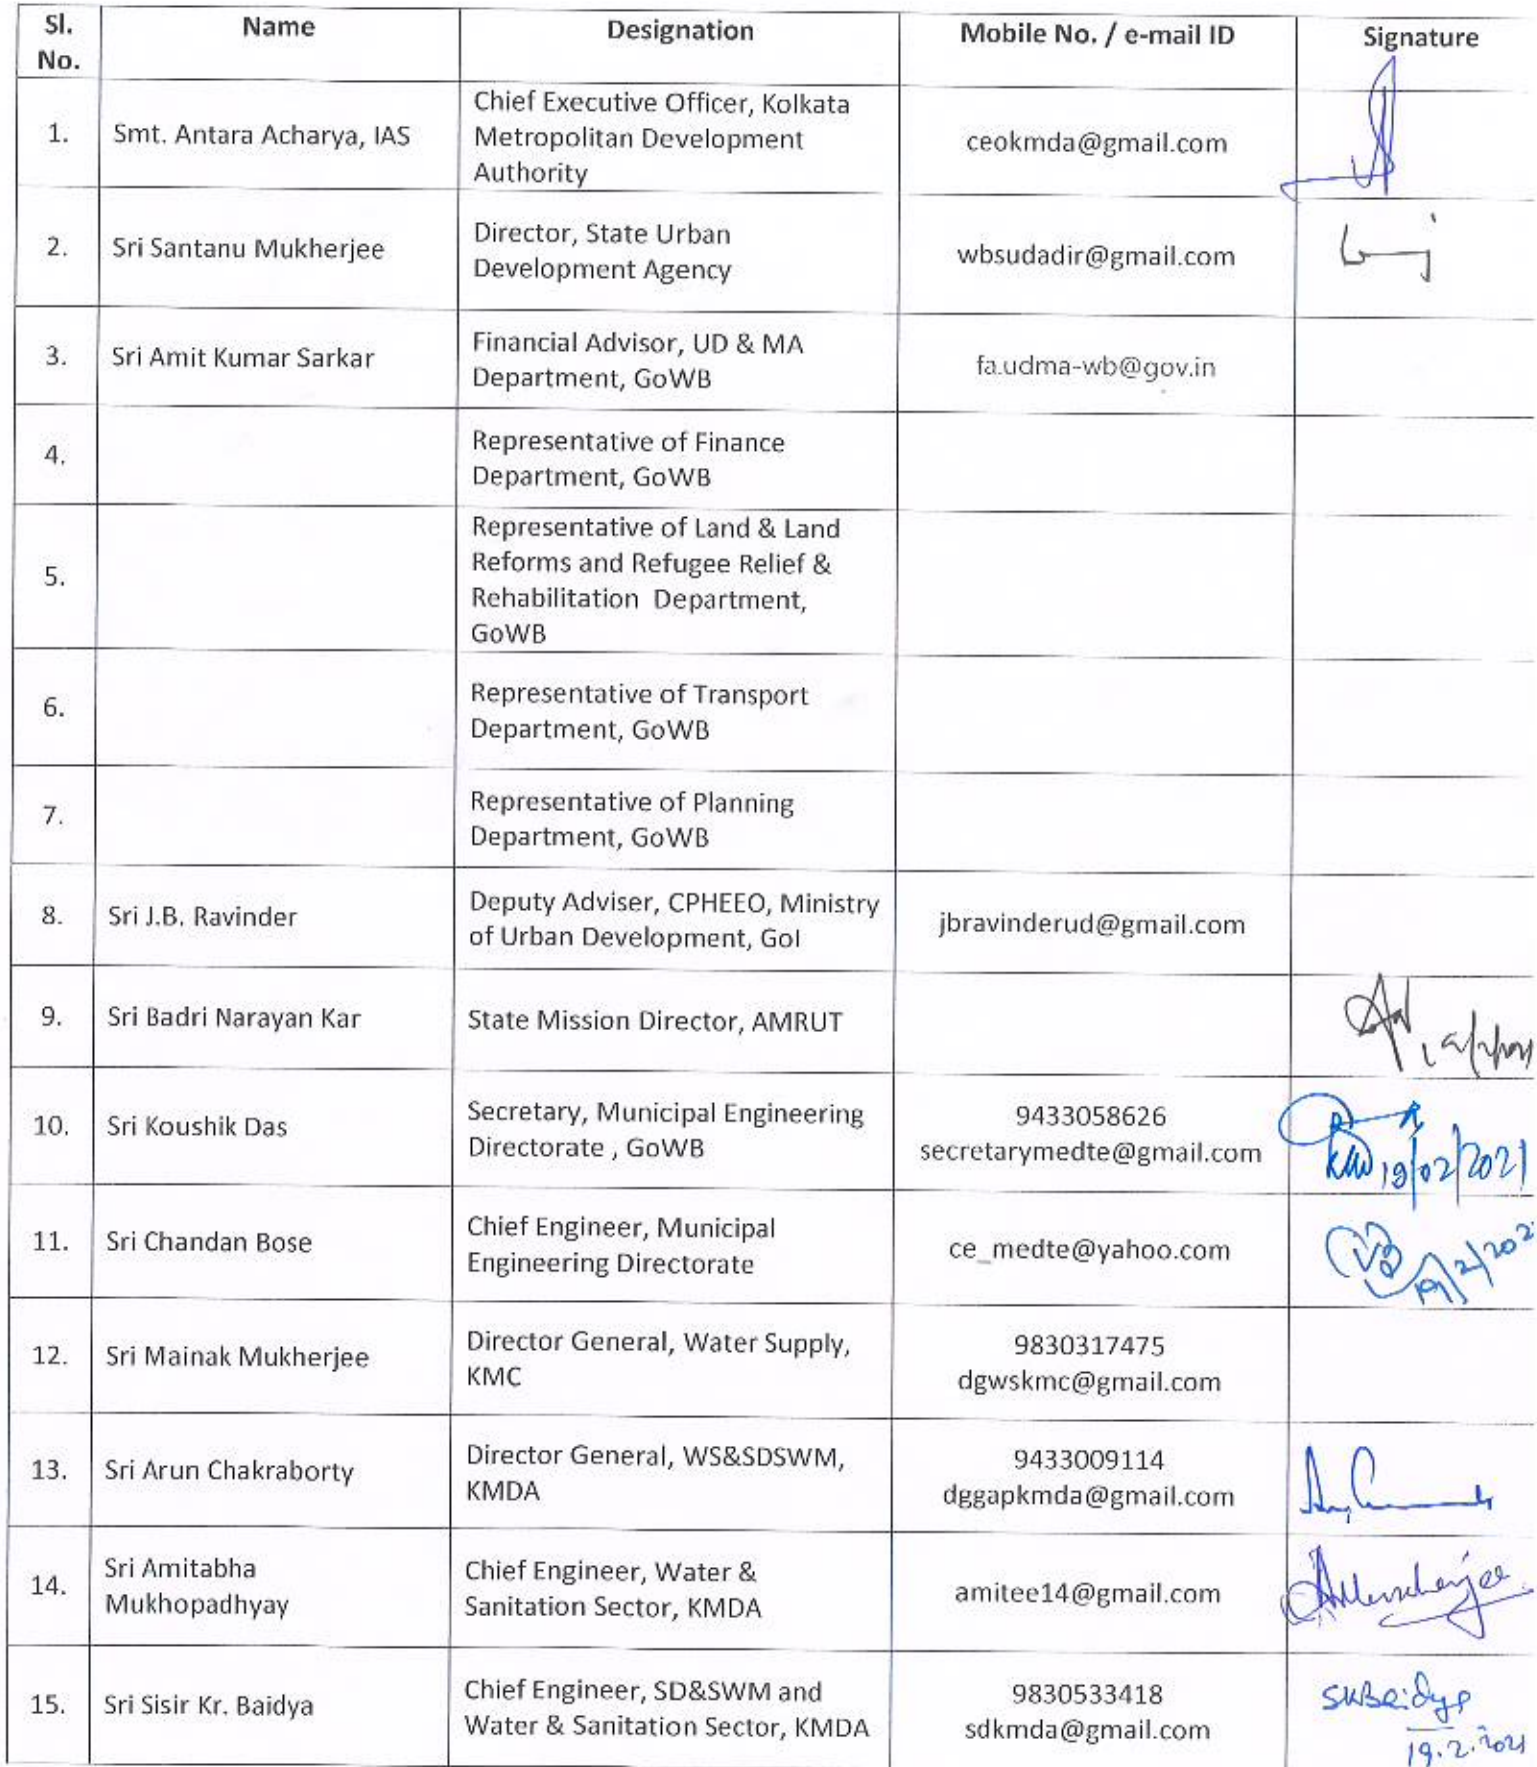 Sl. No. Name Designation Mobile No. / e-mail ID Signature
1. Smt. Antara Acharya, IAS
Chief Executive Officer, Kolkata
Metropolitan Development
Authority
ceokmda@gmail.com
2. Sri Santanu Mukherjee
Director, State Urban
Development Agency
wbsudadir@gmail.com
3. Sri Amit Kumar Sarkar
Financial Advisor, UD & MA
Department, GoWB
fa.udma-wb@gov.in
4.
Representative of Finance
Department, GoWB
5.
Representative of Land & Land
Reforms and Refugee Relief &
Rehabilitation Department,
GoWB
6.
Representative of Transport
Department, GoWB
7.
Representative of Planning
Department, GoWB
8. Sri J.B. Ravinder
Deputy Adviser, CPHEEO, Ministry
of Urban Development, GoI
jbravinderud@gmail.com
9. Sri Badri Narayan Kar
State Mission Director, AMRUT
10. Sri Koushik Das
Secretary, Municipal Engineering
Directorate , GoWB
9433058626
secretarymedte@gmail.com
19/02/2021
11. Sri Chandan Bose
Chief Engineer, Municipal
Engineering Directorate
ce_medte@yahoo.com
12. Sri Mainak Mukherjee
Director General, Water Supply,
KMC
9830317475
dgwskmc@gmail.com
13. Sri Arun Chakraborty
Director General, WS&SDSWM,
KMDA
9433009114
dggapkmda@gmail.com
14. Sri Amitabha
Mukhopadhyay
Chief Engineer, Water &
Sanitation Sector, KMDA
amitee14@gmail.com
AMukherjee
15. Sri Sisir Kr. Baidya
Chief Engineer, SD&SWM and
Water & Sanitation Sector, KMDA
9830533418
sdkmda@gmail.com
SKBaidya
19.2.2021